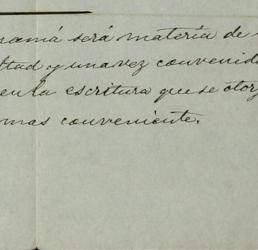 namá será materia de
ltad y una vez convenido
en la escritura que se otorg
mas conveniente.